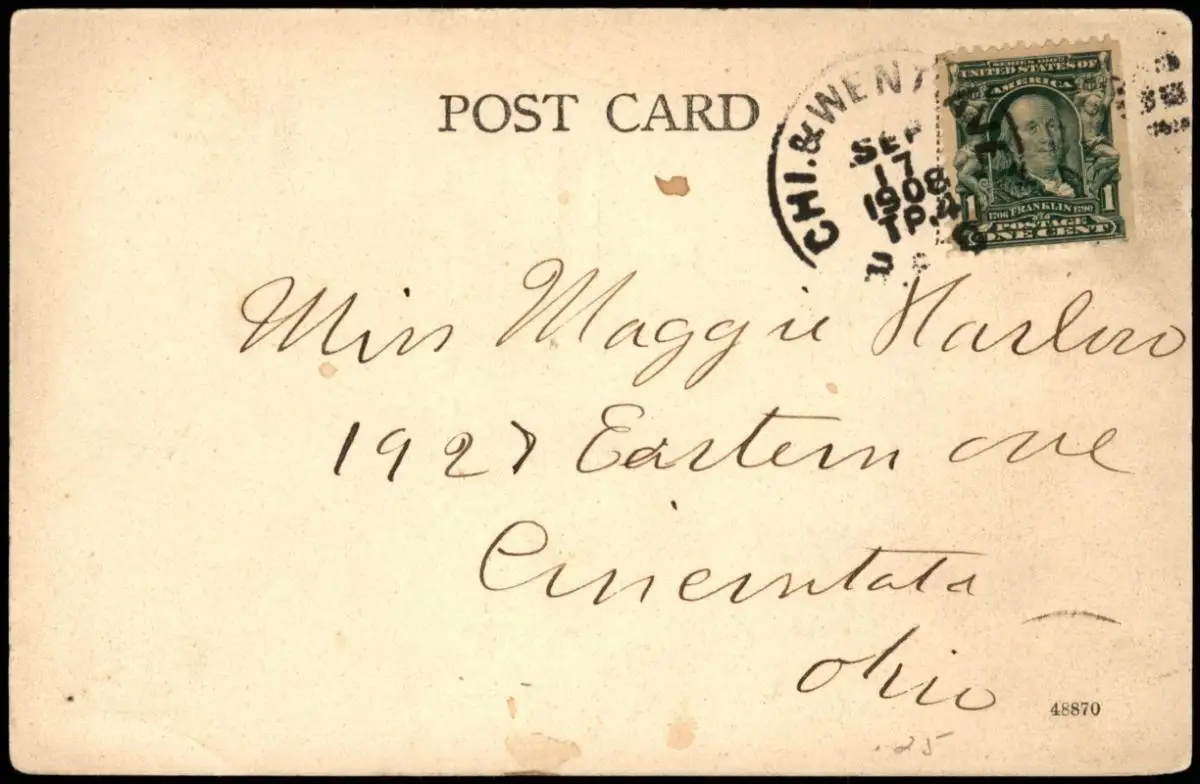 POST CARD
CHI. & WENT
SEP
17
1908
TP.4
SERIES 1902
UNITED STATES OF
AMERICA
1 1706 FRANKLIN 1790 1
POSTAGE
ONE CENT
Miss Maggie Harlow
1927 Eastern ave
Cincintata
Ohio
48870
.25